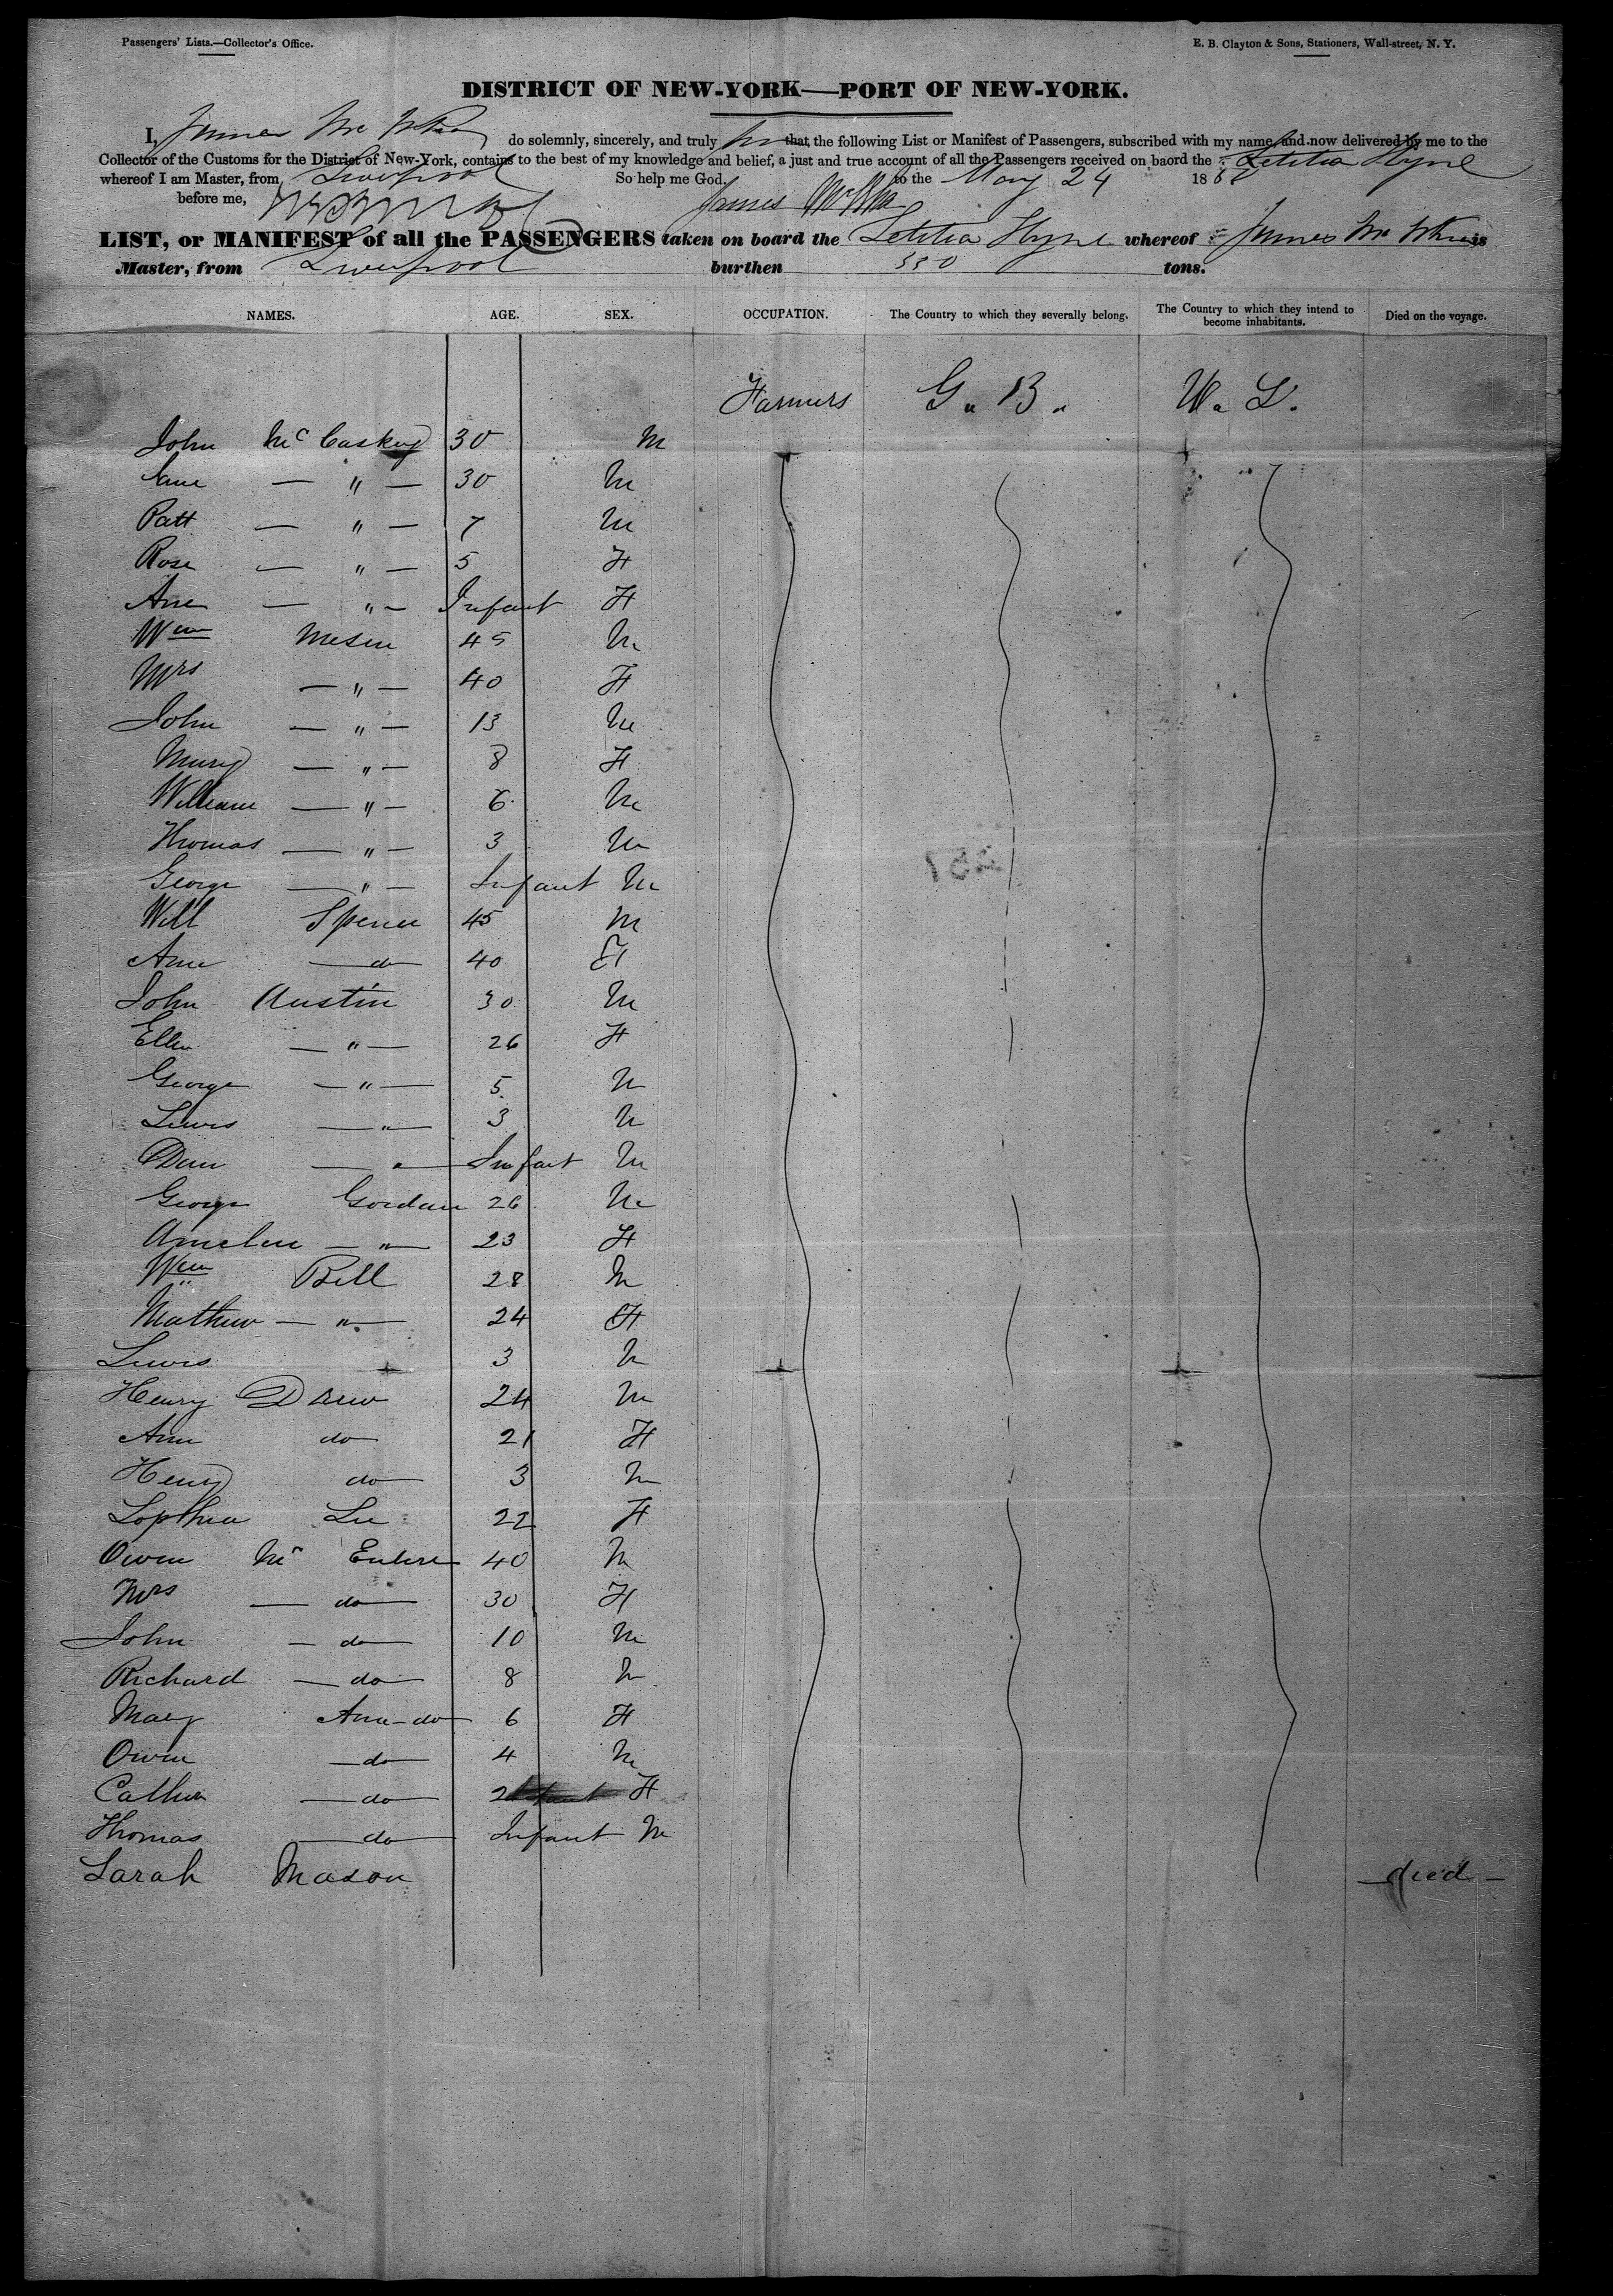 Passengers' Lists.—Collector's Office.
E. B. Clayton & Sons, Stationers, Wall-street, N. Y.
DISTRICT OF NEW-YORK—PORT OF NEW-YORK.
I, James Mc do solemnly, sincerely, and truly that the following List or Manifest of Passengers, subscribed with my name, and now delivered by me to the
Collector of the Customs for the District of New-York, contains to the best of my knowledge and belief, a just and true account of all the Passengers received on baord the Letitia Hyne
whereof I am Master, from Liverpool So help me God. to the May 24 18
before me, James
LIST, or MANIFEST of all the PASSENGERS taken on board the Letitia Hyne whereof James Mc is
Master, from Liverpool burthen 330 tons.
NAMES. AGE. SEX. OCCUPATION. The Country to which they severally belong. The Country to which they intend to become inhabitants. Died on the voyage.
Farmers G. B.
John Mc Caskey 30 M
Jane — " — 30 M
Patt — " — 7 M
Rose — " — 5 F
Ann — " — Infant F
Wm 45 M
Mrs — " — 40 F
John — " — 13 M
Mary — " — 8 F
William — " — 6 M
Thomas — " — 3 M
George — " — Infant M
Will Spence 45 M
Ann — do 40 F
John Austin 30 M
Ellen — " — 26 F
George — " — 5 M
Lewis — " — 3 M
Dan — " — Infant M
George Gordan 26 M
— " — 23 F
Wm Bell 28 M
Mathew — " — 24 F
Lewis 3 M
Henry Drew 24 M
Ann do 21 F
Henry do 3 M
Lee 22 F
Owen Mc 40 M
Mrs — do 30 F
John — do 10 M
Richard — do 8 M
Mary Ann — do 6 F
Owen — do 4 M
— do 2 F
Thomas — do Infant M
Sarah Mason — died —